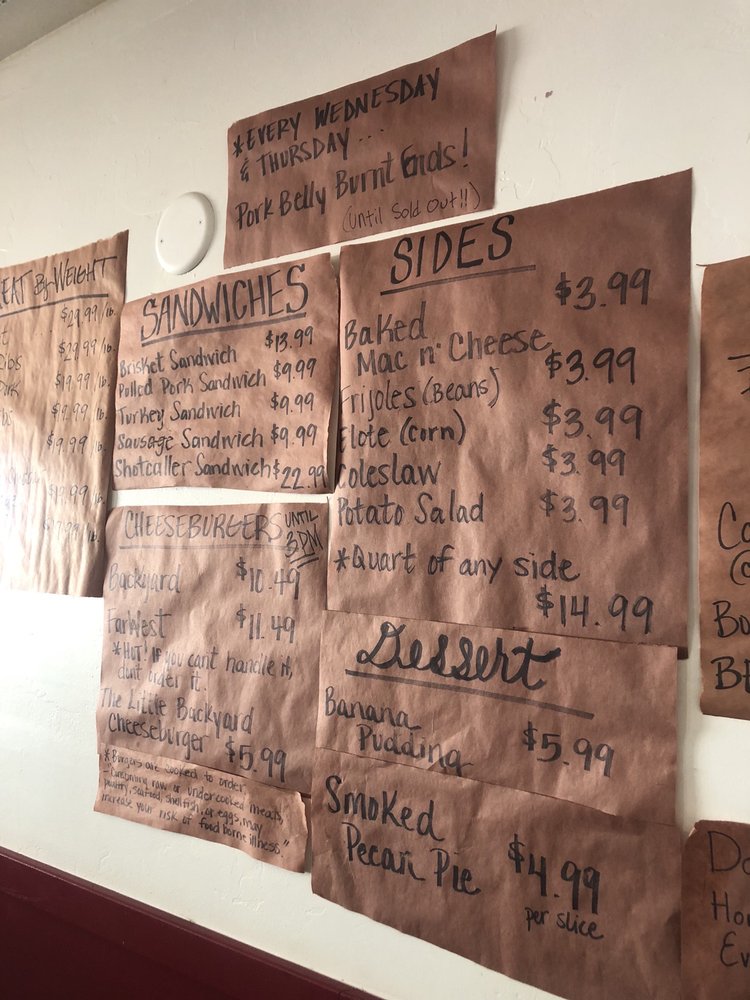 *EVERY WEDNESDAY
& THURSDAY...
Pork Belly Burnt Ends!
(Until Sold Out!!)
BY WEIGHT
... $29.99/lb.
$29.99/lb.
$19.99/lb.
$19.99/lb.
$19.99/lb.
$19.99/lb.
SANDWICHES
Brisket Sandwich $13.99
Pulled Pork Sandwich $9.99
Turkey Sandwich $9.99
Sausage Sandwich $9.99
Shotcaller Sandwich $22.99
CHEESEBURGERS UNTIL 3PM
Backyard $10.49
FarWest $11.49
*HOT! If you can't handle it,
don't order it.
The Little Backyard
Cheeseburger $5.99
*Burgers are cooked to order,
-"Consuming raw or undercooked meats,
poultry, seafood, shellfish, or eggs, may
increase your risk of food borne illness."
SIDES
Baked $3.99
Mac n' Cheese
Frijoles (Beans) $3.99
Elote (Corn) $3.99
Coleslaw $3.99
Potato Salad $3.99
*Quart of any side
$14.99
Dessert
Banana
Pudding $5.99
Smoked
Pecan Pie $4.99
per slice